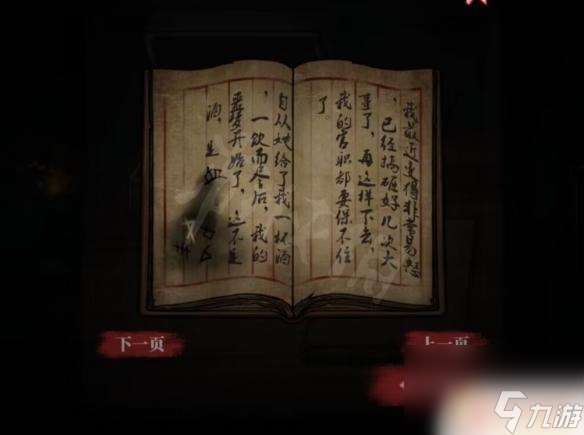 我最近变得非常易怒
，已经搞砸好几次大
事了，再这样下去，
我的官职都要保不住
了
自从她给了我一杯酒
，一饮而尽后，我的
噩梦开始了，这不是
酒，是
下一页
上一页
九游